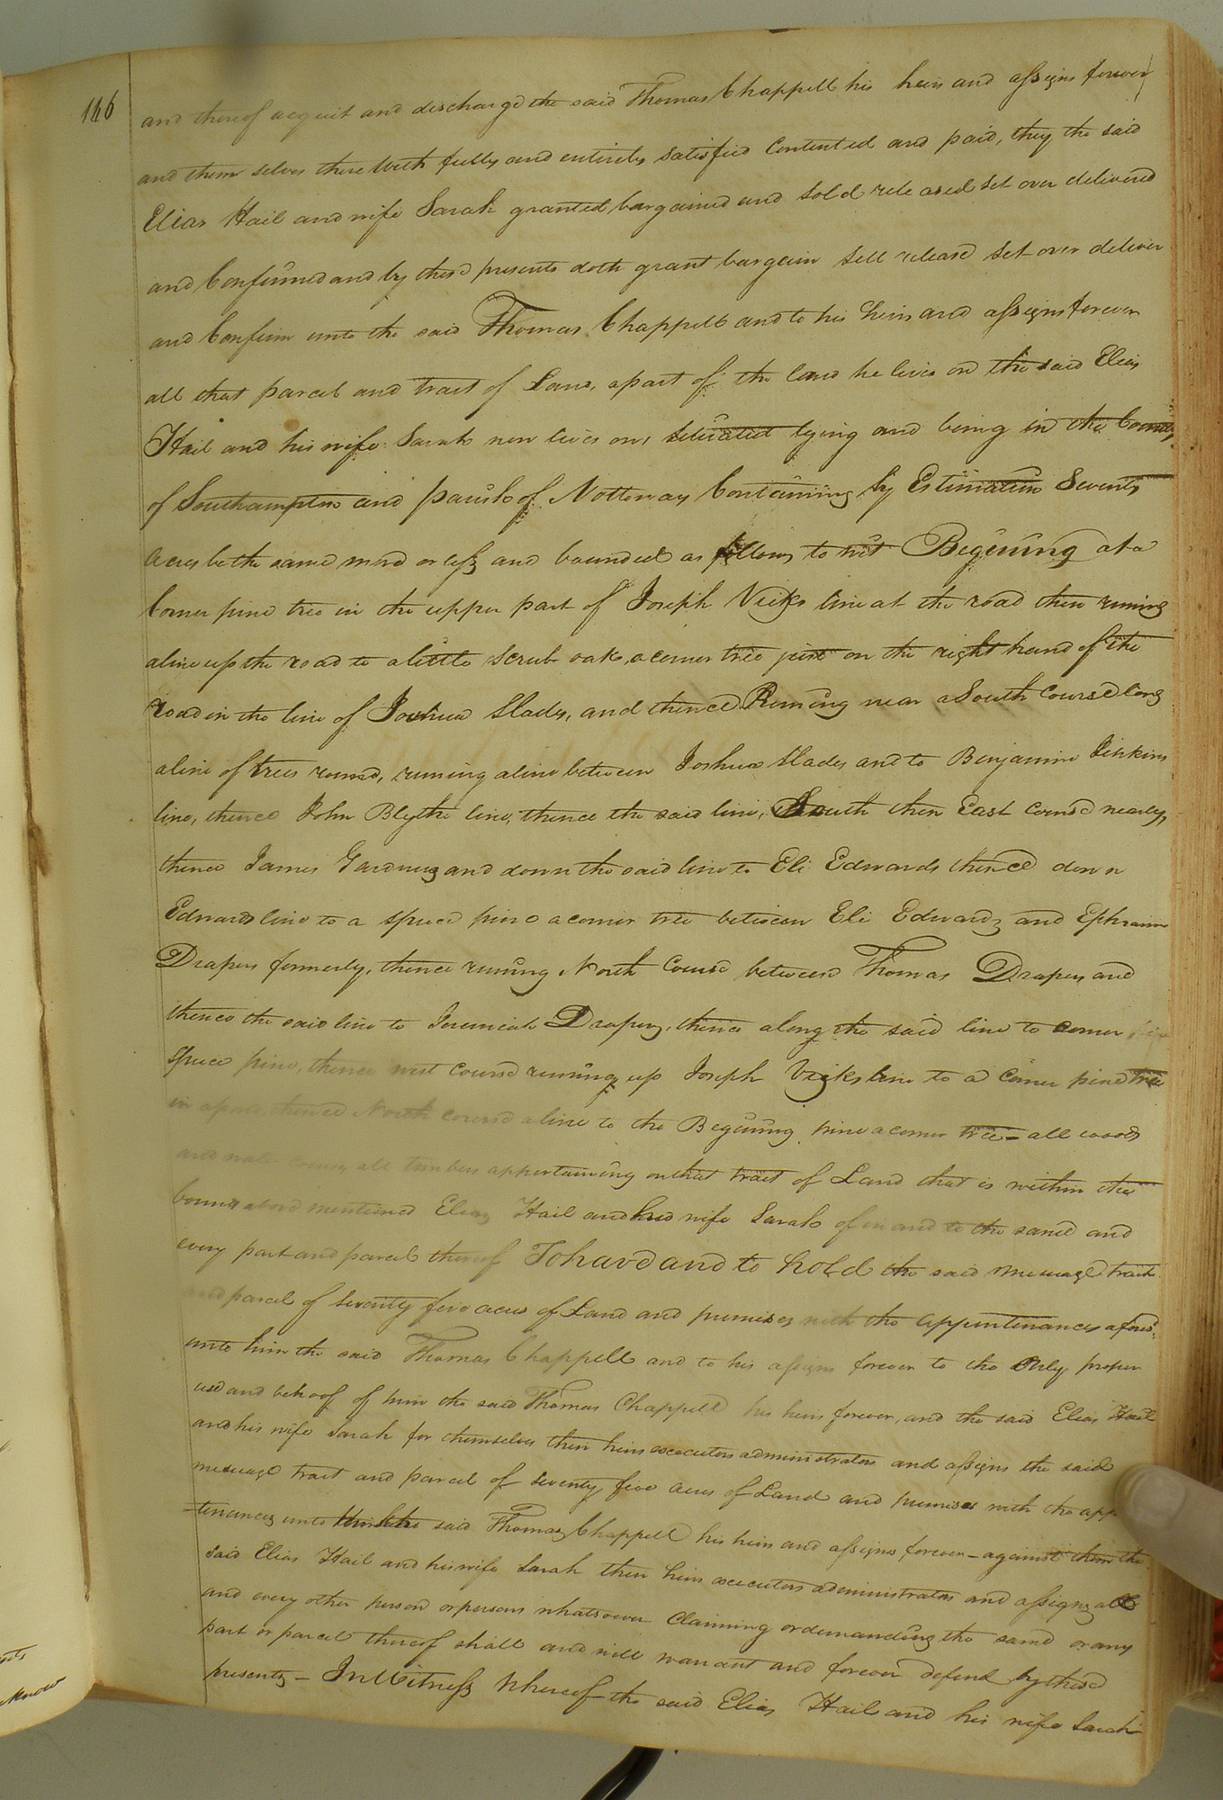 146
and thereof acquit and discharge the said Thomas Chappell his heirs and assigns forever
and them selves there with fully and entirely satisfied Contented and paid, they the said
Elias Hail and wife Sarah granted bargained and sold released set over delivered
and Confirmed and by these presents doth grant bargain sell release set over deliver
and Confirm unto the said Thomas Chappell and to his heirs and assigns forever
all that parcel and tract of Land, apart of the land he lives on the said Elias
Hail and his wife Sarah now lives on, situated lying and being in the County
of Southampton and parish of Nottoway Containing by Estimation Seventy
acres be the same more or less and bounded as follows to wit Begining at a
Corner pine tree in the upper part of Joseph Vicks line at the road then runing
aline up the road to a little scrub oak, a corner tree just on the right hand of the
road in the line of Joshua Slades, and thence Runing near a South Course long
aline of trees round, runing aline between Joshua Slades and to Benjamine Jinkins
line, thence John Blythe line, thence the said line, South then East Course nearly,
thence James Gardners and down the said line to Eli Edwards thence down
Edwards line to a spruce pine a corner tree between Eli Edwards and Ephraim
Drapers formerly, thence runing North Course between Thomas Drapers and
thence the said line to Jeremiah Drapers, thence along the said line to corner
spruce pine, thence west course runing up Joseph Vicks line to a corner pine tree
in thence North course aline to the Begining pine a corner tree - all woods
and all timbers appertaining on that tract of Land that is within the
bounds above mentioned Elias Hail and his wife Sarah of in and to the same and
every part and parcel thereof To have and to hold the said messuage tract
and parcel of seventy five acres of Land and premises with the appurtenances afores.
unto him the said Thomas Chappell and to his assigns forever to the Only proper
use and behoof of him the said Thomas Chappell his heirs forever, and the said Elias Hail
and his wife Sarah for themselves their heirs executors administrators and assigns the said
messuage tract and parcel of seventy five acres of Land and premises with the app
-tenances unto the said Thomas Chappell his heirs and assigns forever - against them the
said Elias Hail and his wife Sarah their heirs executors administrators and assigns all
and every other person or persons whatsoever Claiming or demanding the same or any
part or parcel thereof shall and will warrant and forever defend by these
presents - In Witness Whereof the said Elias Hail and his wife Sarah